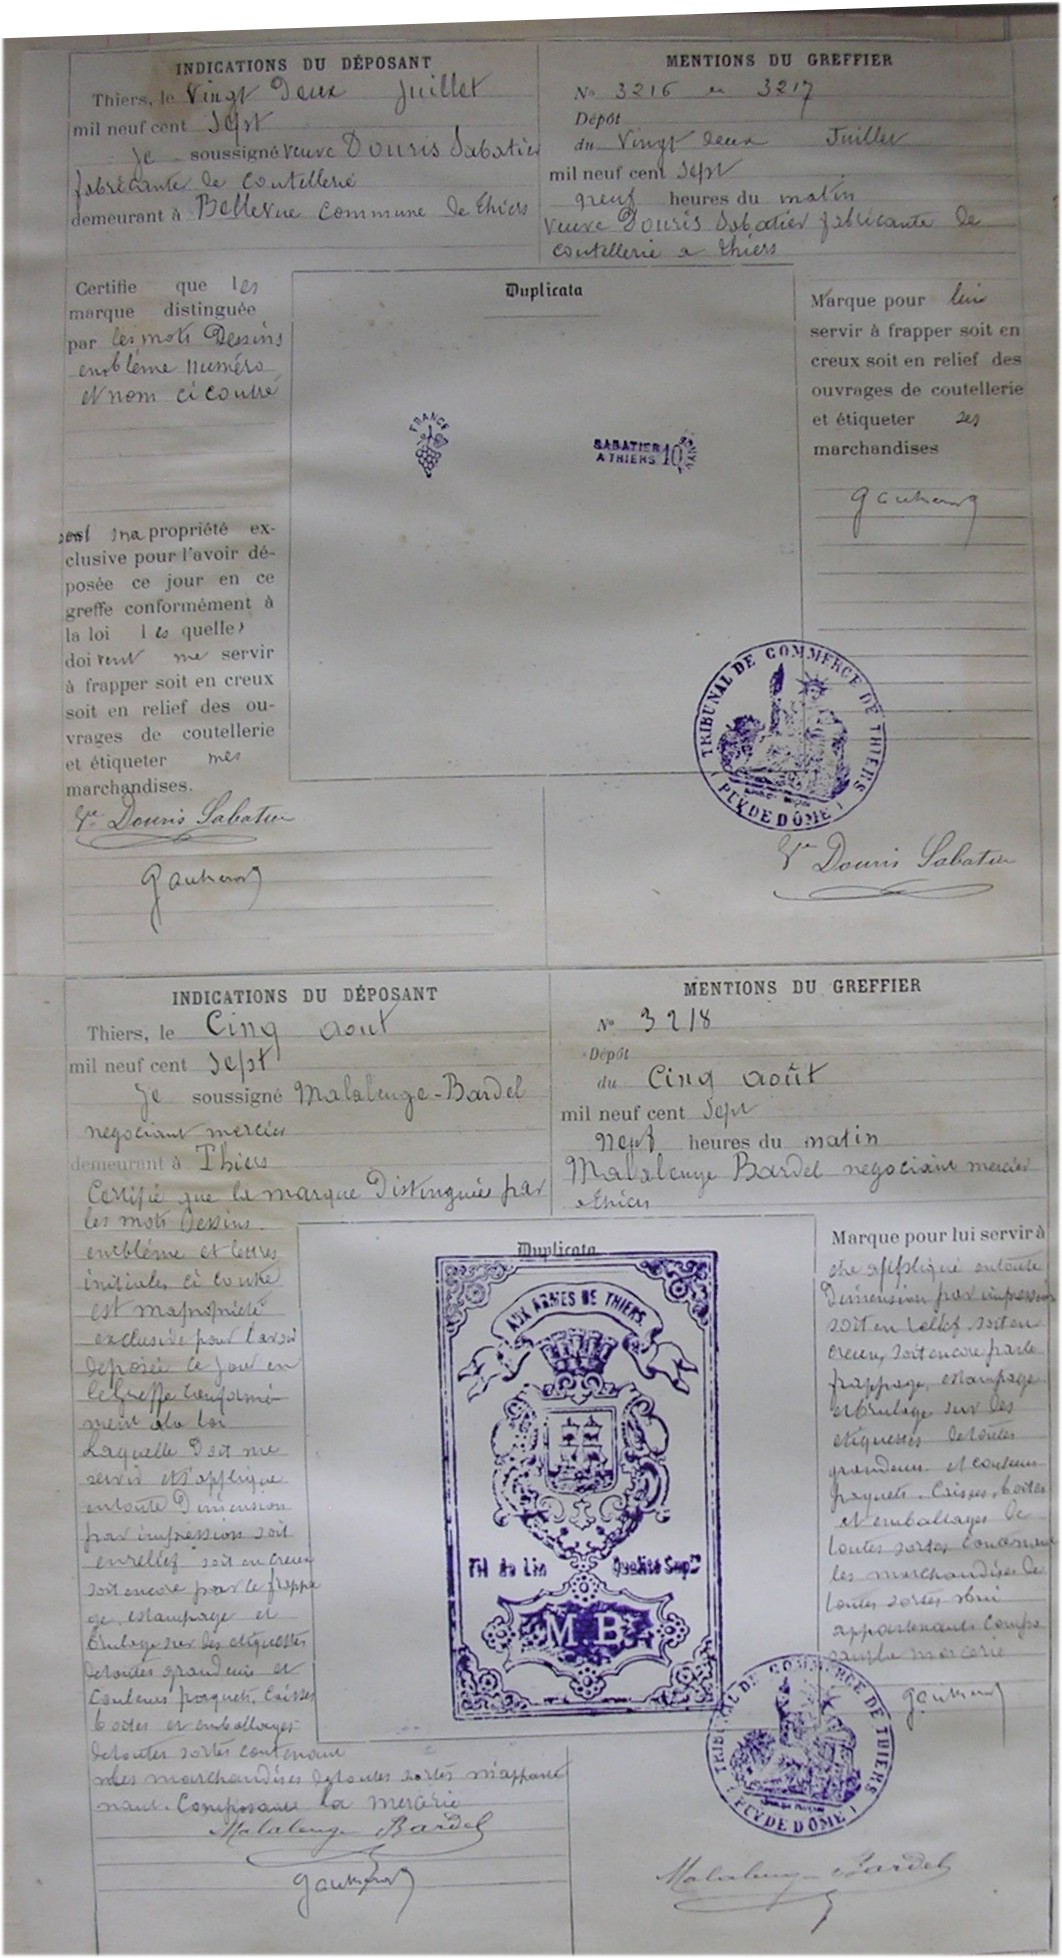 INDICATIONS DU DÉPOSANT
Thiers, le Vingt Deux Juillet
mil neuf cent Sept
Je soussigné veuve Douris Sabatier
fabricante de coutellerie
demeurant à Bellevue Commune de Thiers
MENTIONS DU GREFFIER
No 3216 et 3217
Dépôt
du Vingt deux Juillet
mil neuf cent Sept
neuf heures du matin
veuve Douris Sabatier fabricante de
coutellerie a thiers
Certifie que les
marque distinguée
par les mots Dessins
emblême numéro
et nom ci contre
sont ma propriété ex-
clusive pour l'avoir dé-
posée ce jour en ce
greffe conformément à
la loi les quelles
doivent me servir
à frapper soit en creux
soit en relief des ou-
vrages de coutellerie
et étiqueter mes
marchandises.
Vve Douris Sabatier
Gauheron
Duplicata
FRANCE
SABATIER
A THIERS 10
Marque pour lui
servir à frapper soit en
creux soit en relief des
ouvrages de coutellerie
et étiqueter ses
marchandises
TRIBUNAL DE COMMERCE DE THIERS
(PUY DE DÔME)
Vve Douris Sabatier
INDICATIONS DU DÉPOSANT
Thiers, le Cinq aout
mil neuf cent Sept
Je soussigné Malalenge-Bardel
negociant mercier
demeurant à Thiers
Certifié que la marque Distinguée par
les mots Dessins
emblême et lettres
initiales ci contre
est mapropriété
exclusive pour l'avoir
deposée ce jour en
le Greffe conformé-
ment ala loi
Laquelle Doit me
servir et s'applique
entoute Dimension
par impression soit
enrelief soit en creux
soit encore par le frappa
ge, estampage et
Brulage sur des etiquettes
detoutes grandeurs et
Couleurs paquets, Caisses
boites et emballages
detoutes sortes contenant
des marchandises detoutes sortes m'apparte
nant. Composant la mercerie
Malalenge Bardel
MENTIONS DU GREFFIER
No 3218
Dépôt
du Cinq août
mil neuf cent Sept
Neuf heures du matin
Malalenge Bardel negociant mercier
a thiers
Duplicata
AUX ARMES DE THIERS.
Fil de Lin Qualité Supre
M B
Marque pour lui servir à
etre appliqué entoute
Dimension par impression
soit en relief, soit en
creux, soit encore par le
frappage, estampage
et Brulage sur des
etiquettes detoutes
grandeurs et couleurs
paquets, Caisses, boites
et emballages de
toutes sortes Contenant
les marchandises de
toutes sortes
appartenant Compo
sant la mercerie
TRIBUNAL DE COMMERCE DE THIERS
(PUY DE DÔME)
Malalenge Bardel